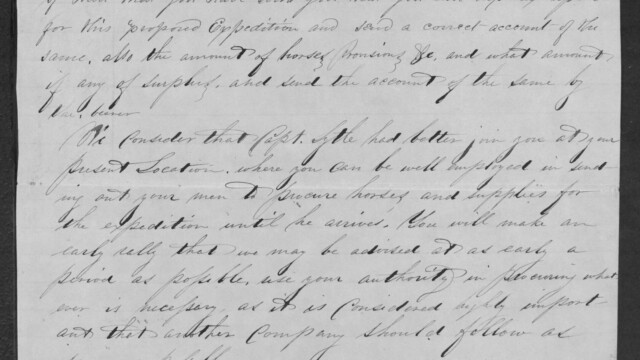 for this proposed Expedition and send a correct account of the
same, also the amount of horses Provisins &c, and what amount
if any of surplus, and send the account of the same by
the, bearer
We consider that Capt. Lytle had better join you at your
present Location, where you can be well employed in send
ing out your men to procure horses and supplies for
the expedition until he arrives. You will make an
early rally that we may be advised at as early a
period as possible, use your authority in procuring what
ever is necessary, as it is considered highly import
ant that another Company should follow as